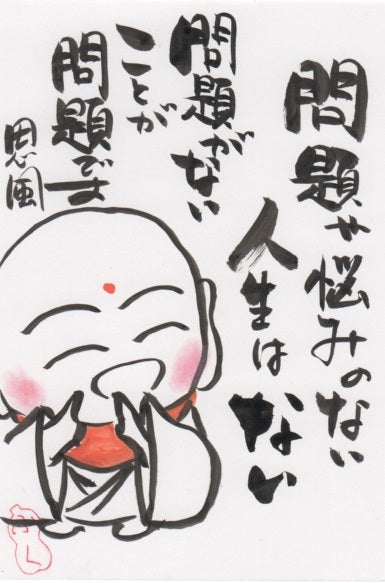 問題や悩みのない
人生はない
問題がない
ことが
問題です
恩風